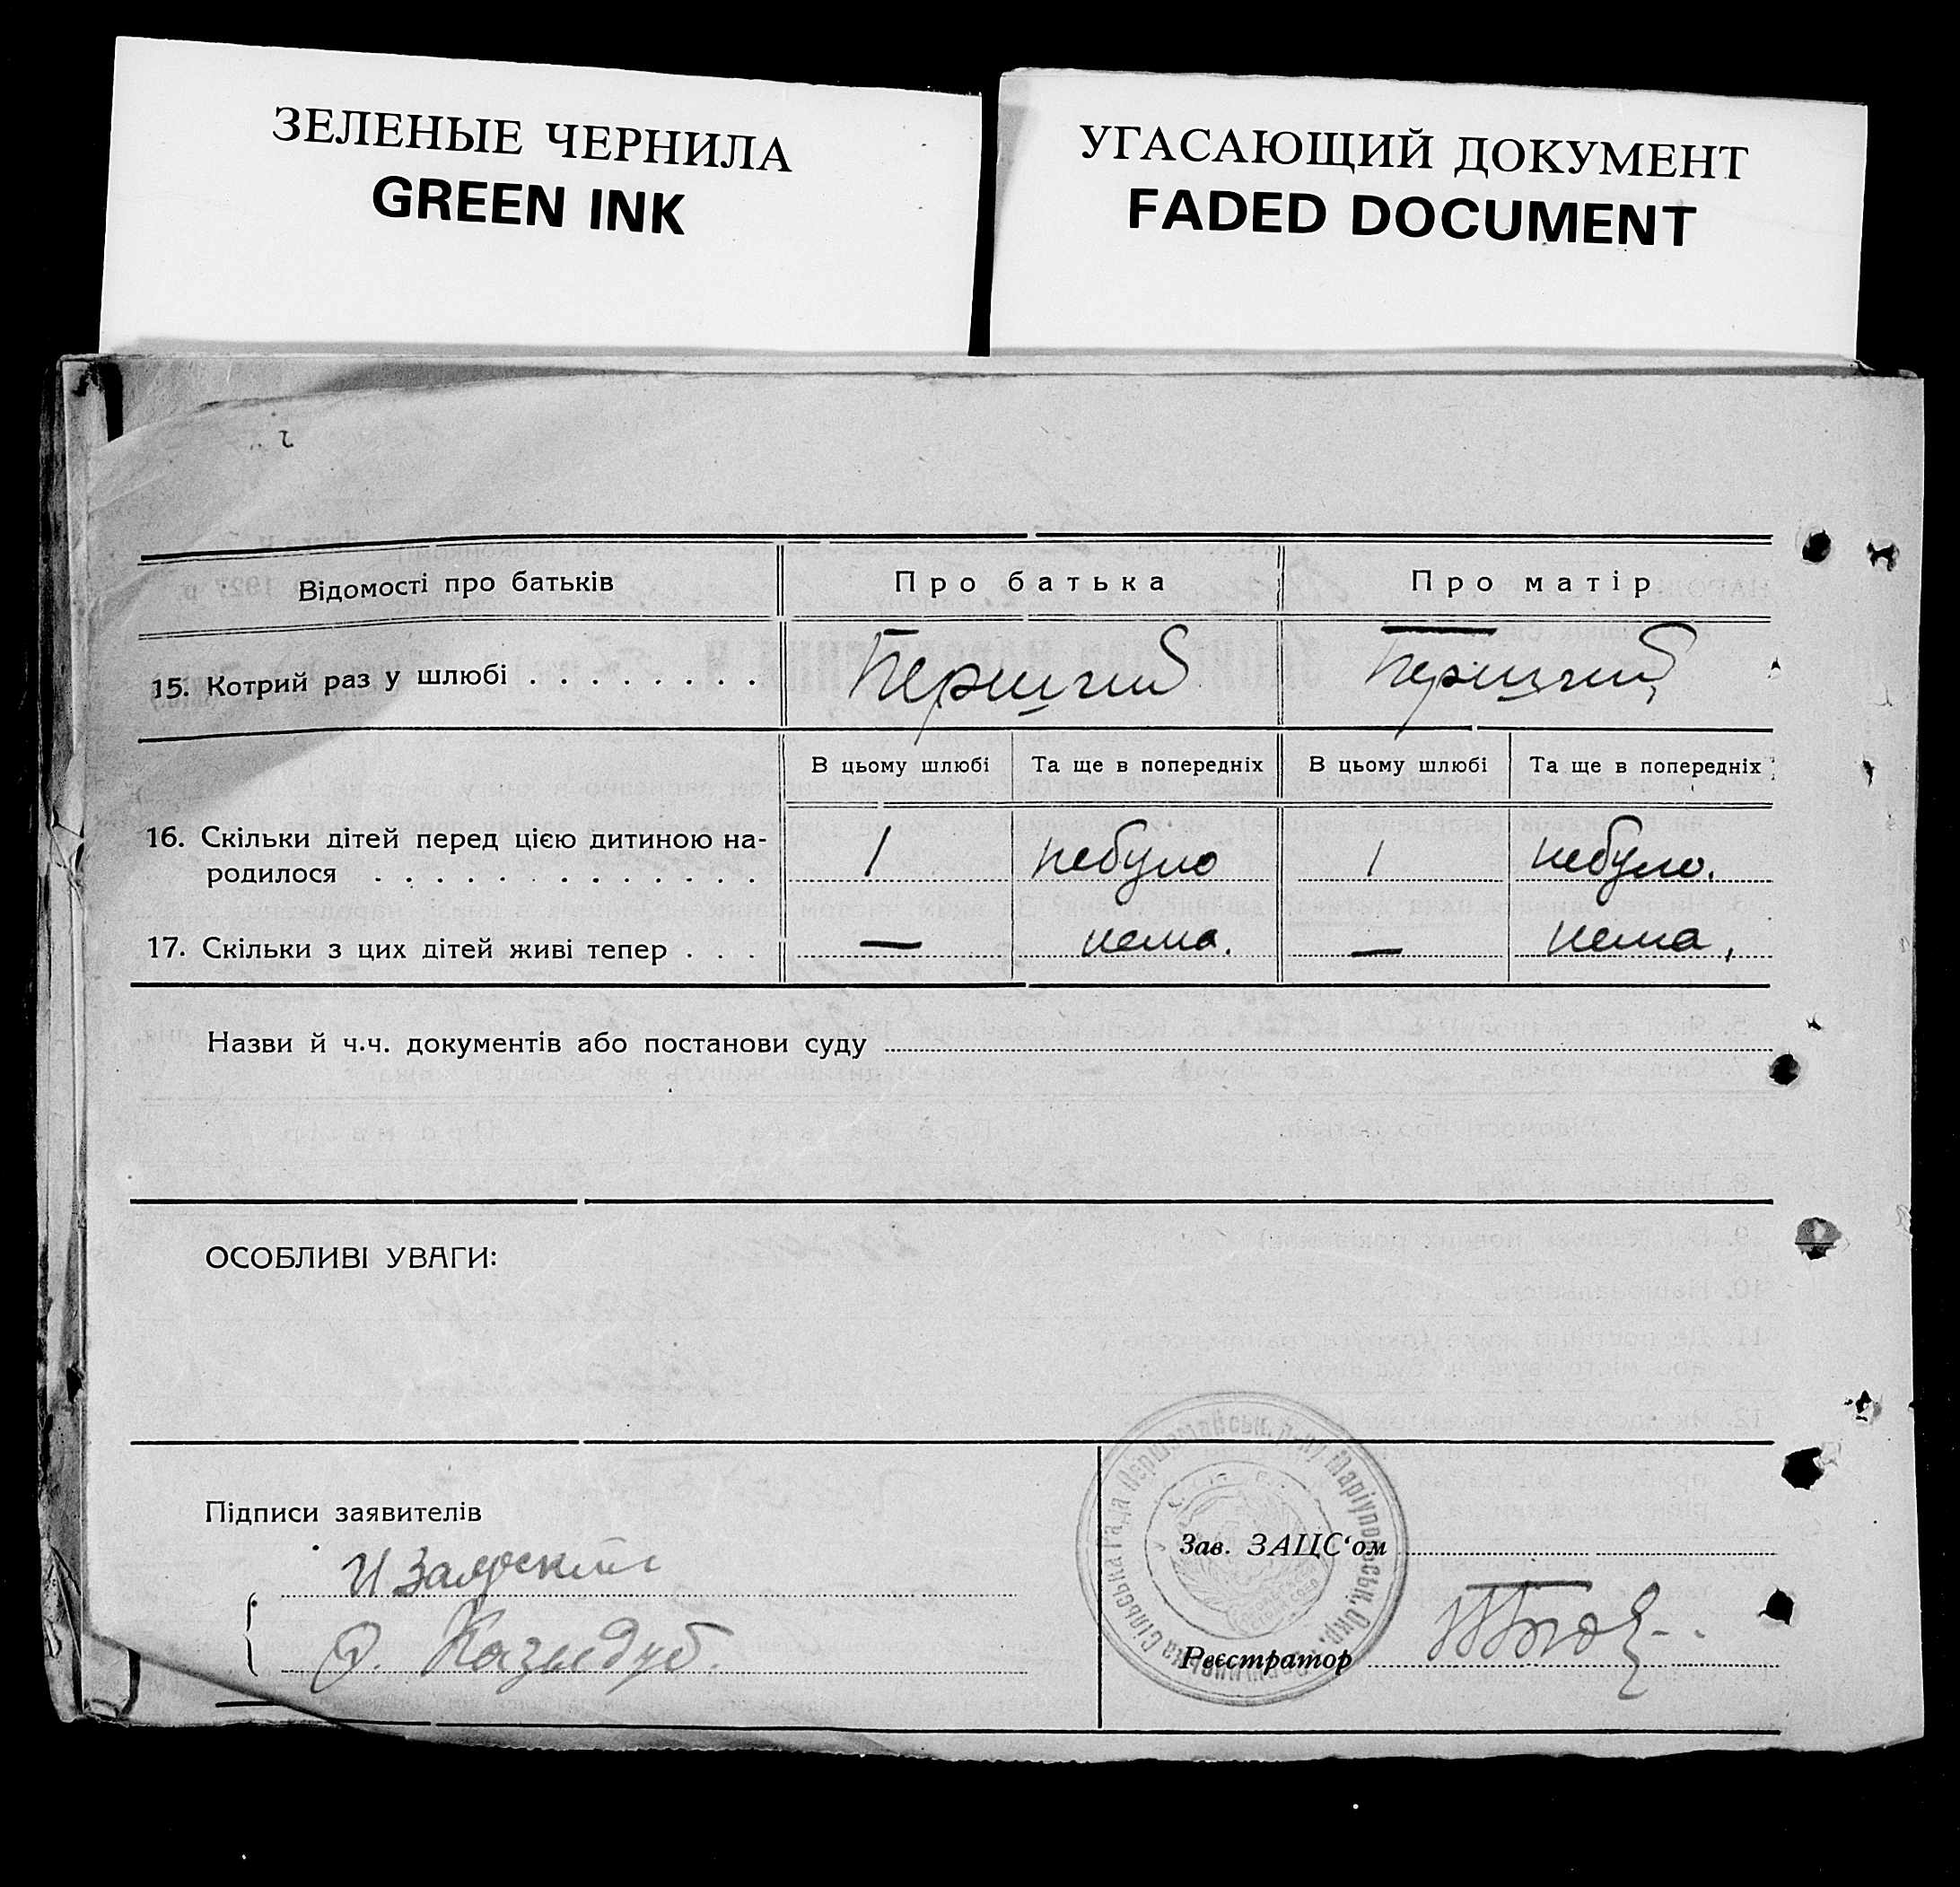 ЗЕЛЕНЫЕ ЧЕРНИЛА
GREEN INK
УГАСАЮЩИЙ ДОКУМЕНТ
FADED DOCUMENT
Відомості про батьків Про батька Про матір
15. Котрий раз у шлюбі . . . . . . . . Перший Перший
В цьому шлюбі Та ще в попередніх В цьому шлюбі Та ще в попередніх
16. Скільки дітей перед цією дитиною на-
родилося . . . . . . . . . . . . . . 1 небуло 1 небуло.
17. Скільки з цих дітей живі тепер . . . — нема. — нема,
Назви й ч.ч. документів або постанови суду
ОСОБЛИВІ УВАГИ:
Підписи заявителів
Зав. ЗАЦС'ом
Реєстратор
Сільська Рада Першомайськ. р-ну Маріупольськ. Окр.